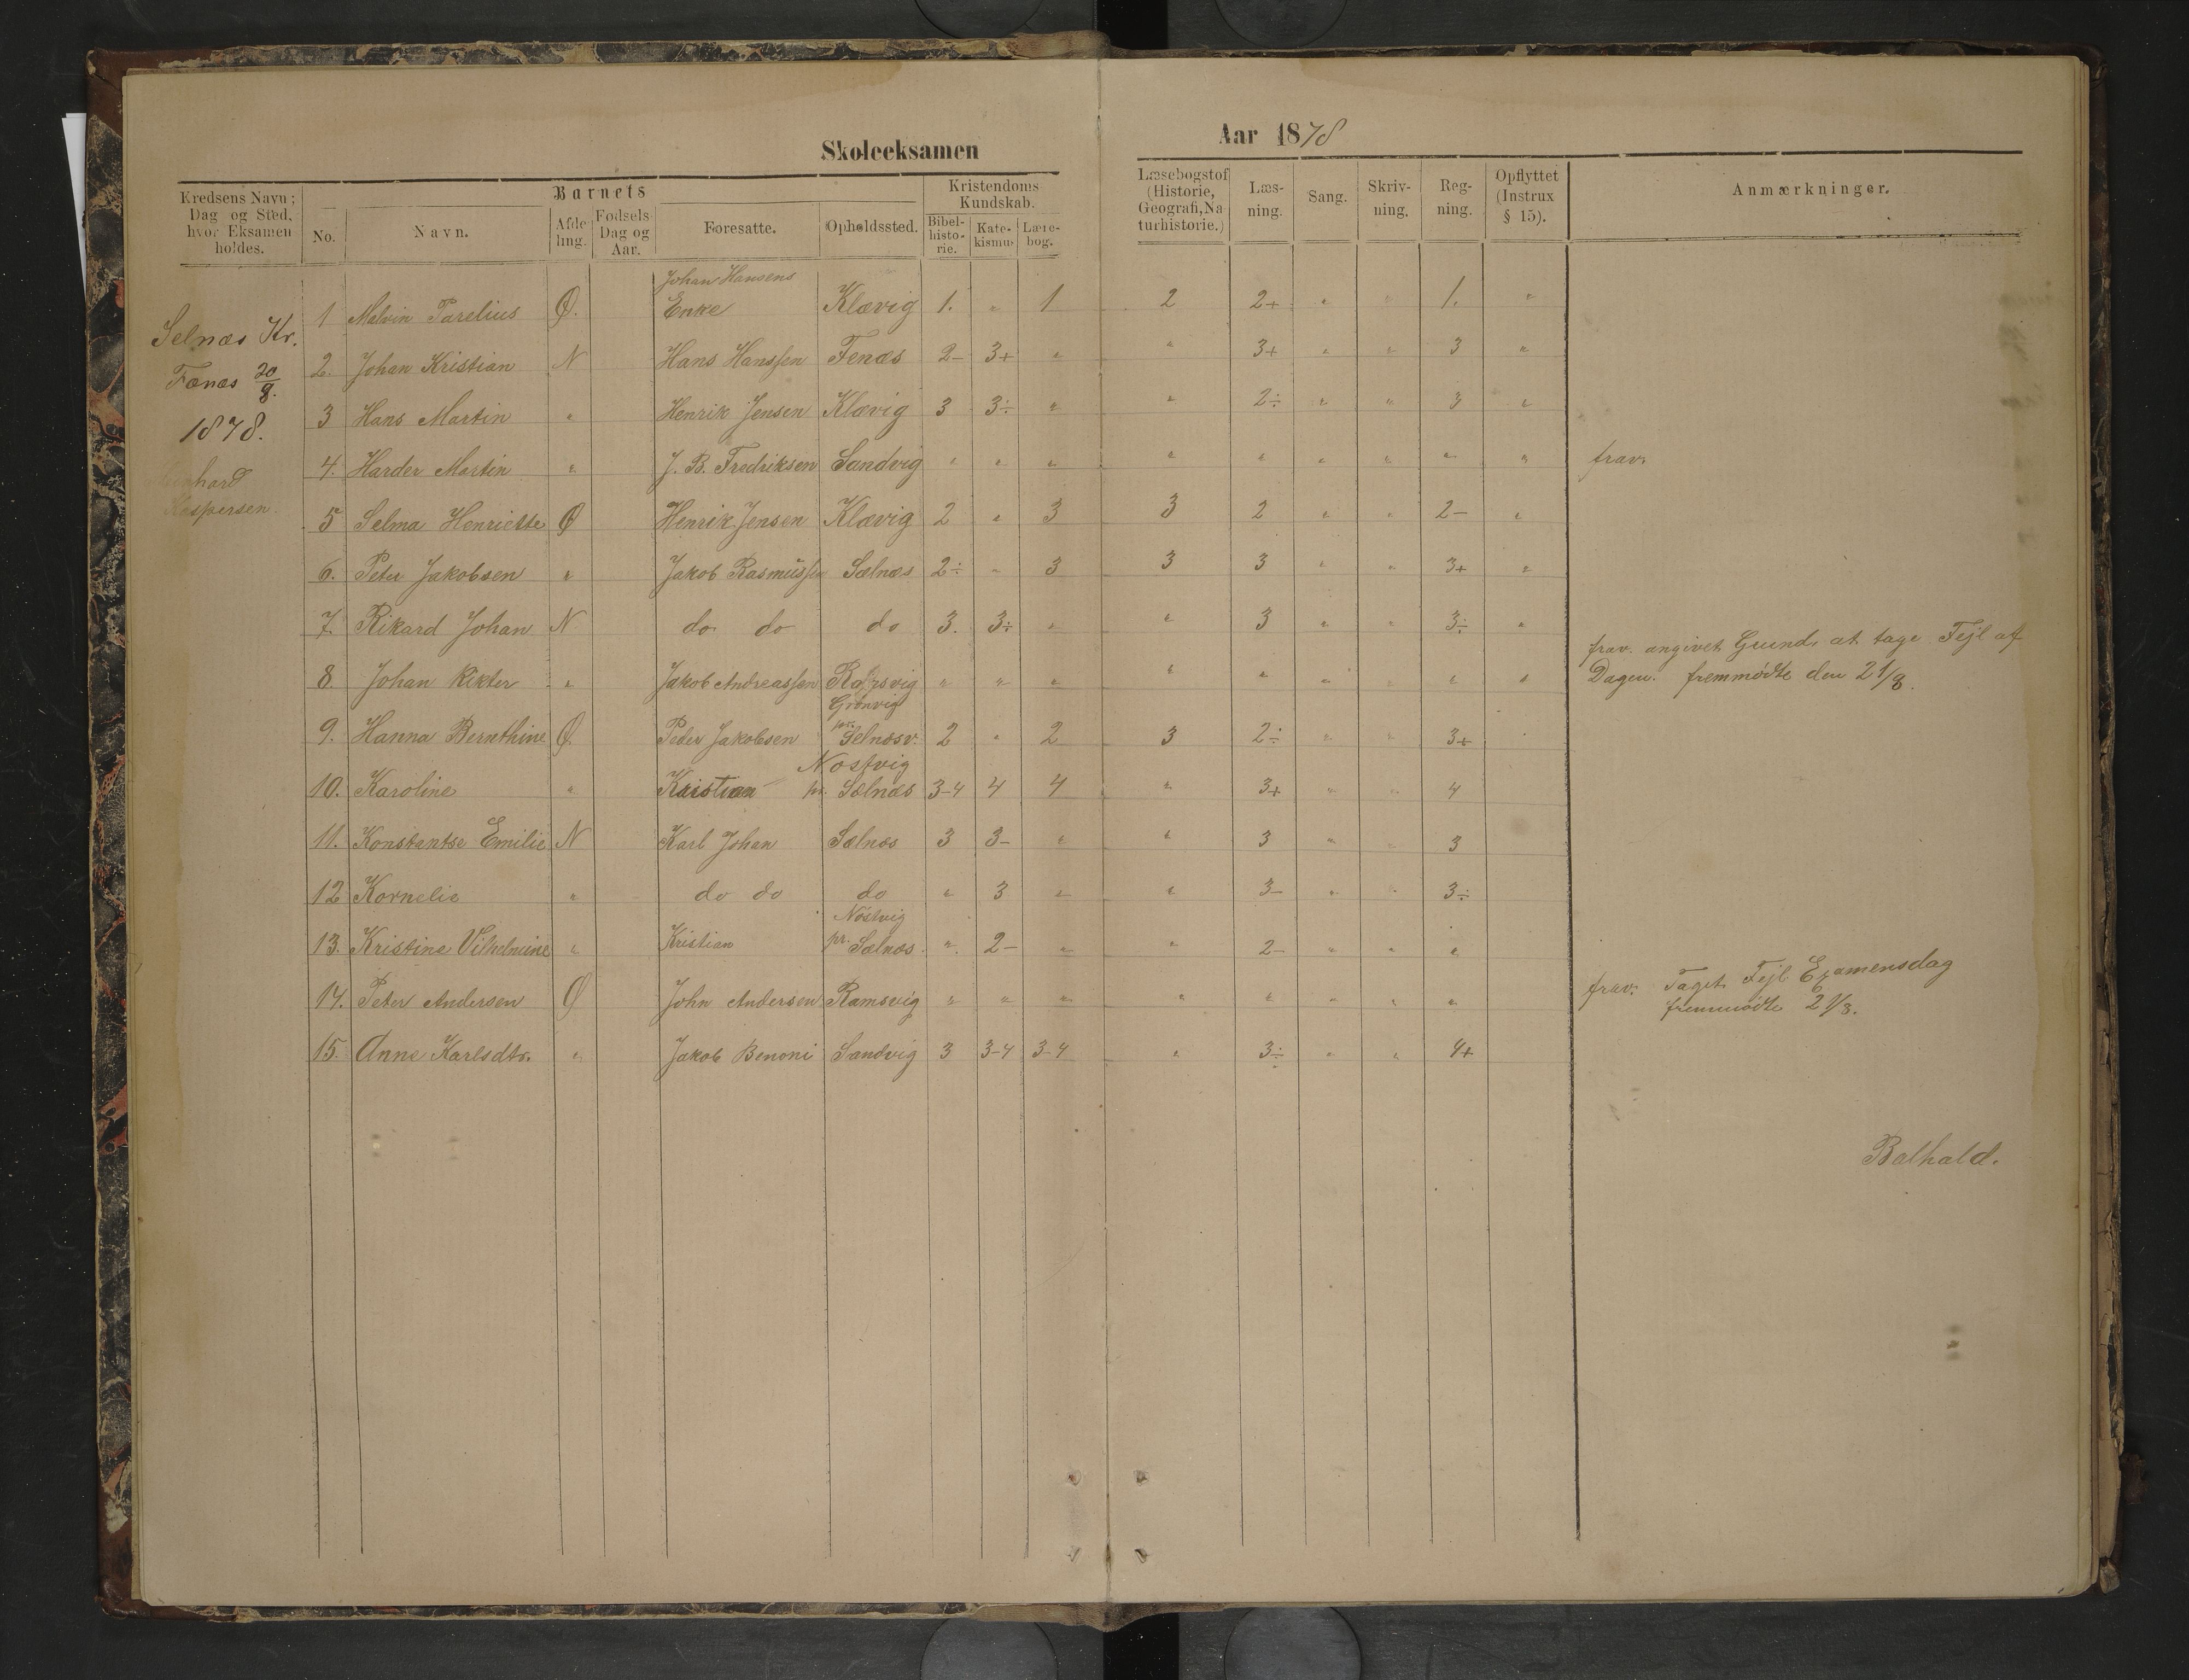 Skoleeksamen Aar 1878
Kredsens Navn; Dag og Sted, hvor Eksamen holdes.
Barnets
No. Navn. Afdeling. Fødsels Dag og Aar. Foresatte. Opholdssted.
Kristendoms Kundskab.
Bibelhistorie. Katekismus Lærebog.
Læsebogstof (Historie, Geografi, Naturhistorie.) Læsning. Sang. Skrivning. Regning. Opflyttet (Instrux § 15). Anmærkninger.
Selnæs Kr.
Fænæs 20/8.
1878.
Kaspersen
Johan Hansens
1 Malvin Parelius Ø. Enke Klævig 1. " 1 2 2+ " " 1. "
2. Johan Kristian N Hans Hanssen Fenæs 2- 3+ " " 3+ " " 3 "
3 Hans Martin " Henrik Jensen Klævig 3 3÷ " " 2÷ " " 3 "
4. Harder Martin " J. B. Fredriksen Sandvig " " " " " " " " " frav.
5 Selma Henriette Ø Henrik Jensen Klævig 2 " 3 3 2 " " 2- "
6. Peter Jakobsen " Jakob Rasmussen Sælnæs 2÷ " 3 3 3 " " 3+ "
7. Rikard Johan N do do do 3. 3÷ " " 3 " " 3÷ "
frav. angivet Grund, at tage Fejl af
8. Johan Rikter " Jakob Andreassen " " " " " " " " " Dagen. fremmødte den 21/8.
Grønvig
9. Hanna Bernthine Ø. Peder Jakobsen pr. Selnæsv. 2 " 2 3 2÷ " " 3+
Nostvig
10. Karoline " Kristian pr. Sælnæs 3-4 4 4 " 3+ " " 4
11. Konstantse Emilie N Karl Johan Sælnæs 3 3- " " 3 " " 3
12 Kornelie " do do do " 3 " " 3- " " 3÷
Nóstvig
13. Kristine Vilhelmine " Kristian pr. Sælnæs. " 2- " " 2- " " "
14. Peter Andersen Ø John Andersen Ramsvig " " " " " " " " frav. Taget Fejl Examensdag
fremmødte 21/8.
15. Anne Karlsdtr. " Jakob Benoni Sandvig 3 3-4 3-4 " 3÷ " " 4+
Balhald.